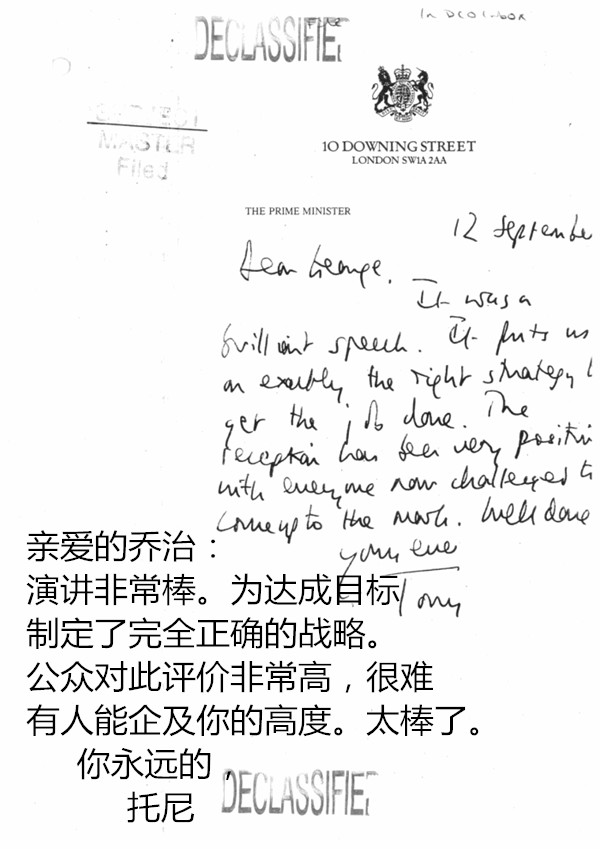 In DCO I-box
DECLASSIFIE
SUBJECT
MASTER
Filed
10 DOWNING STREET
LONDON SW1A 2AA
THE PRIME MINISTER
12 Septembe
Dear George,
It was a
brilliant speech. It puts us
on exactly the right strategy t
get the job done. The
reception has been very positiv
with everyone now challenged t
come up to the mark. Well done
Yours ever
Tony
亲爱的乔治：
演讲非常棒。为达成目标
制定了完全正确的战略。
公众对此评价非常高，很难
有人能企及你的高度。太棒了。
你永远的，
托尼
DECLASSIFIE